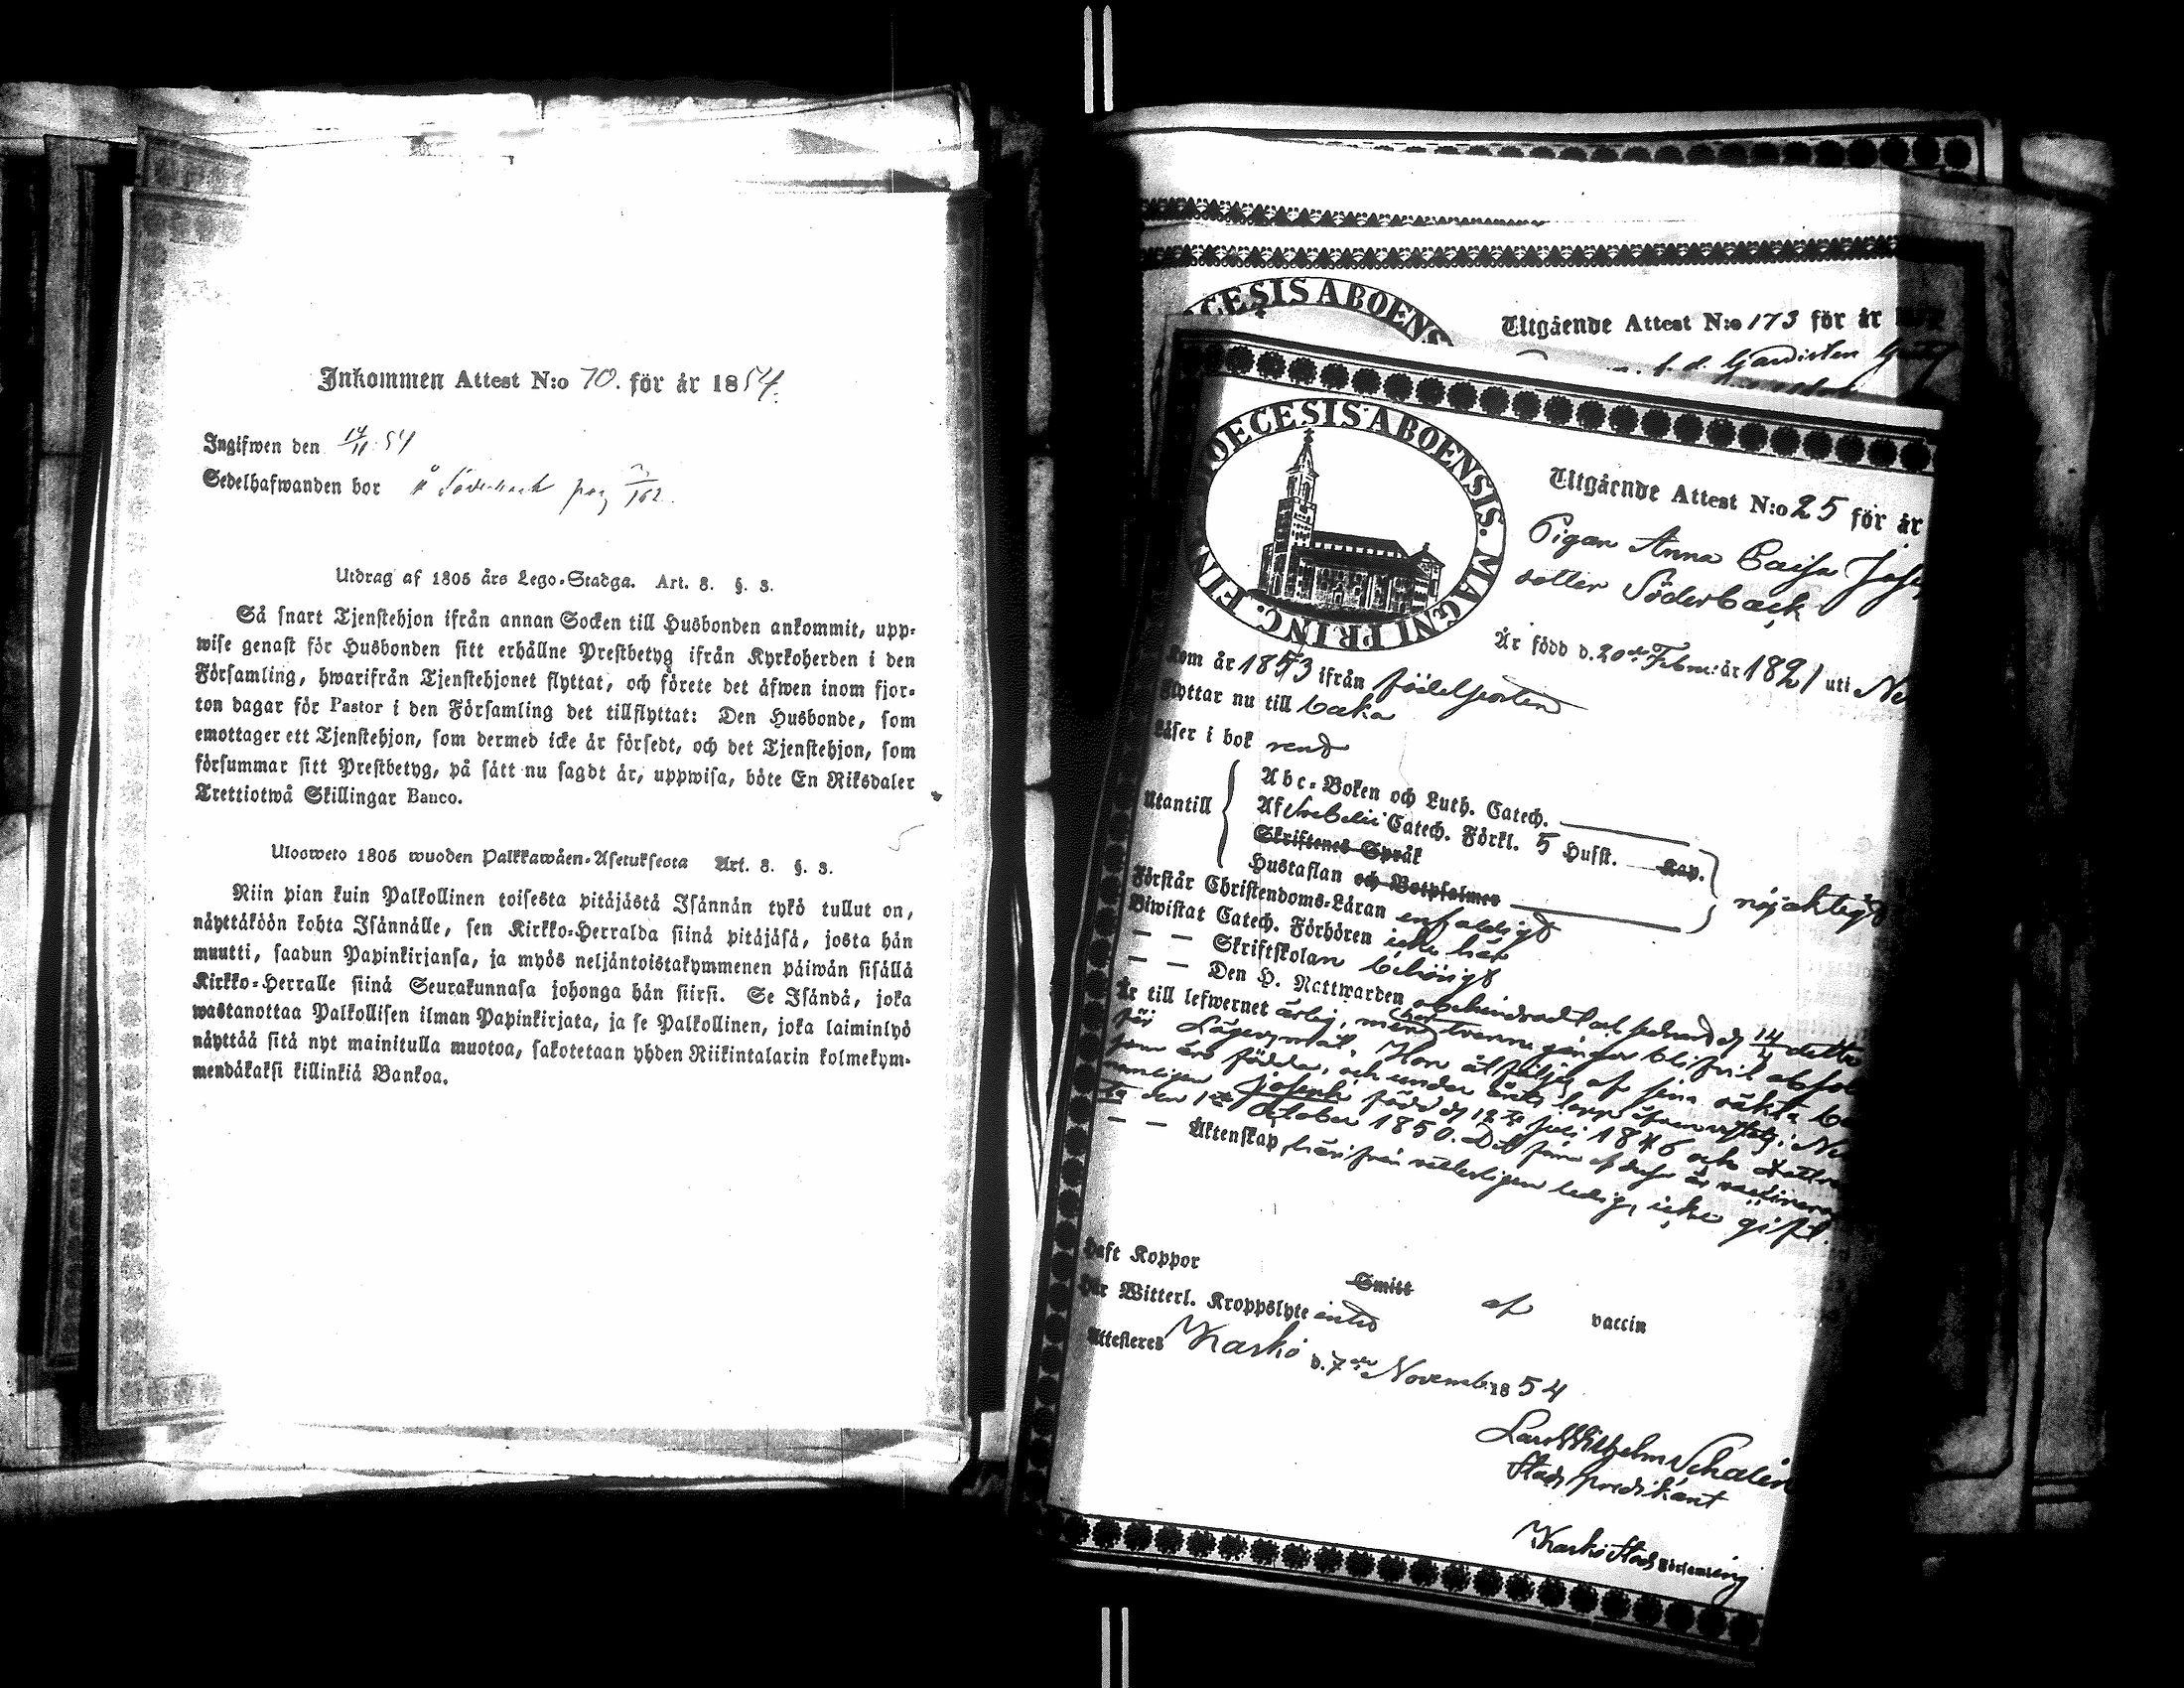 Inkommen Attest N:o 70. för år 1854.
Ingifwen den 14/11 54
Sedelhafwanden bor å Söderback pag 162.
Utdrag af 1805 års Lego-Stadga. Art. 8. §. 3.
Så snart Tjenstehjon ifrån annan Socken till Husbonden ankommit, upp-
wise genast för Husbonden sitt erhållne Prestbetyg ifrån Kyrkoherden i den
Församling, hwarifrån Tjenstehjonet flyttat, och förete det äfwen inom fjor-
ton dagar för Pastor i den Församling det tillflyttat: Den Husbonde, som
emottager ett Tjenstehjon, som dermed icke är försedt, och det Tjenstehjon, som
försummar sitt Prestbetyg, på sätt nu sagdt är, uppwisa, böte En Riksdaler
Trettiotwå Skillingar Banco.
Ulosweto 1805 wuoden Palkkawäen-Asetuksesta Art. 8. §. 3.
Niin pian kuin Palkollinen toisesta pitäjästä Isännän tykö tullut on,
näyttäköön kohta Isännälle, sen Kirkko-Herralda siinä pitäjäsä, josta hän
muutti, saadun Papinkirjansa, ja myös neljäntoistakymmenen päiwän sisällä
Kirkko-Herralle siinä Seurakunnasa johonga hän siirsi. Se Isändä, joka
wastanottaa Palkollisen ilman Papinkirjata, ja se Palkollinen, joka laiminlyö
näyttää sitä nyt mainitulla muotoa, sakotetaan yhden Riikintalarin kolmekym-
mendäkaksi killinkiä Bankoa.
CESIS ABOENS
Utgående Attest N:o 173 för år
f. d. Gardisten
OECESIS ABOENSIS. MAGNI PRINC. FIN
Utgående Attest N:o 25 för år
Pigan Anna Caisa
dotter Söderback
Är född d. 20de Febru: år 1821 uti
kom år 1853 ifrån födelseorten
flyttar nu till baka
läser i bok rent
Utantill
Abc-Boken och Luth. Catech.
Af Svebelii Catech. Förkl. 5 Hufst. Kap.
Skriftenes Språk
Hustaflan och Botpsalmer
nöjaktigt
Förstår Christendoms-Läran enfaldigt
Biwistat Catech. Förhören icke här
— — Skriftskolan behörigt
— — Den H. Nattwarden obehindradt
Är till lefwernet ärlig, men har trenne gånger blifvit
för Lägersmål. Hon åtföljes af sina oäkta
som äro födda, och under
Joseph född d 12te Juli 1846 och dottren
den 1ste October 1850.
— — Äktenskap härifrån vitterligen ledig, icke gift.
haft Koppor Smitt af vaccin
har Witterl. Kroppslyte intet
Attesteres Kaskö d. 7de Novemb. 1854
Lars Wilhelm Schalin
Stads predikant
Kaskö Stads Församling